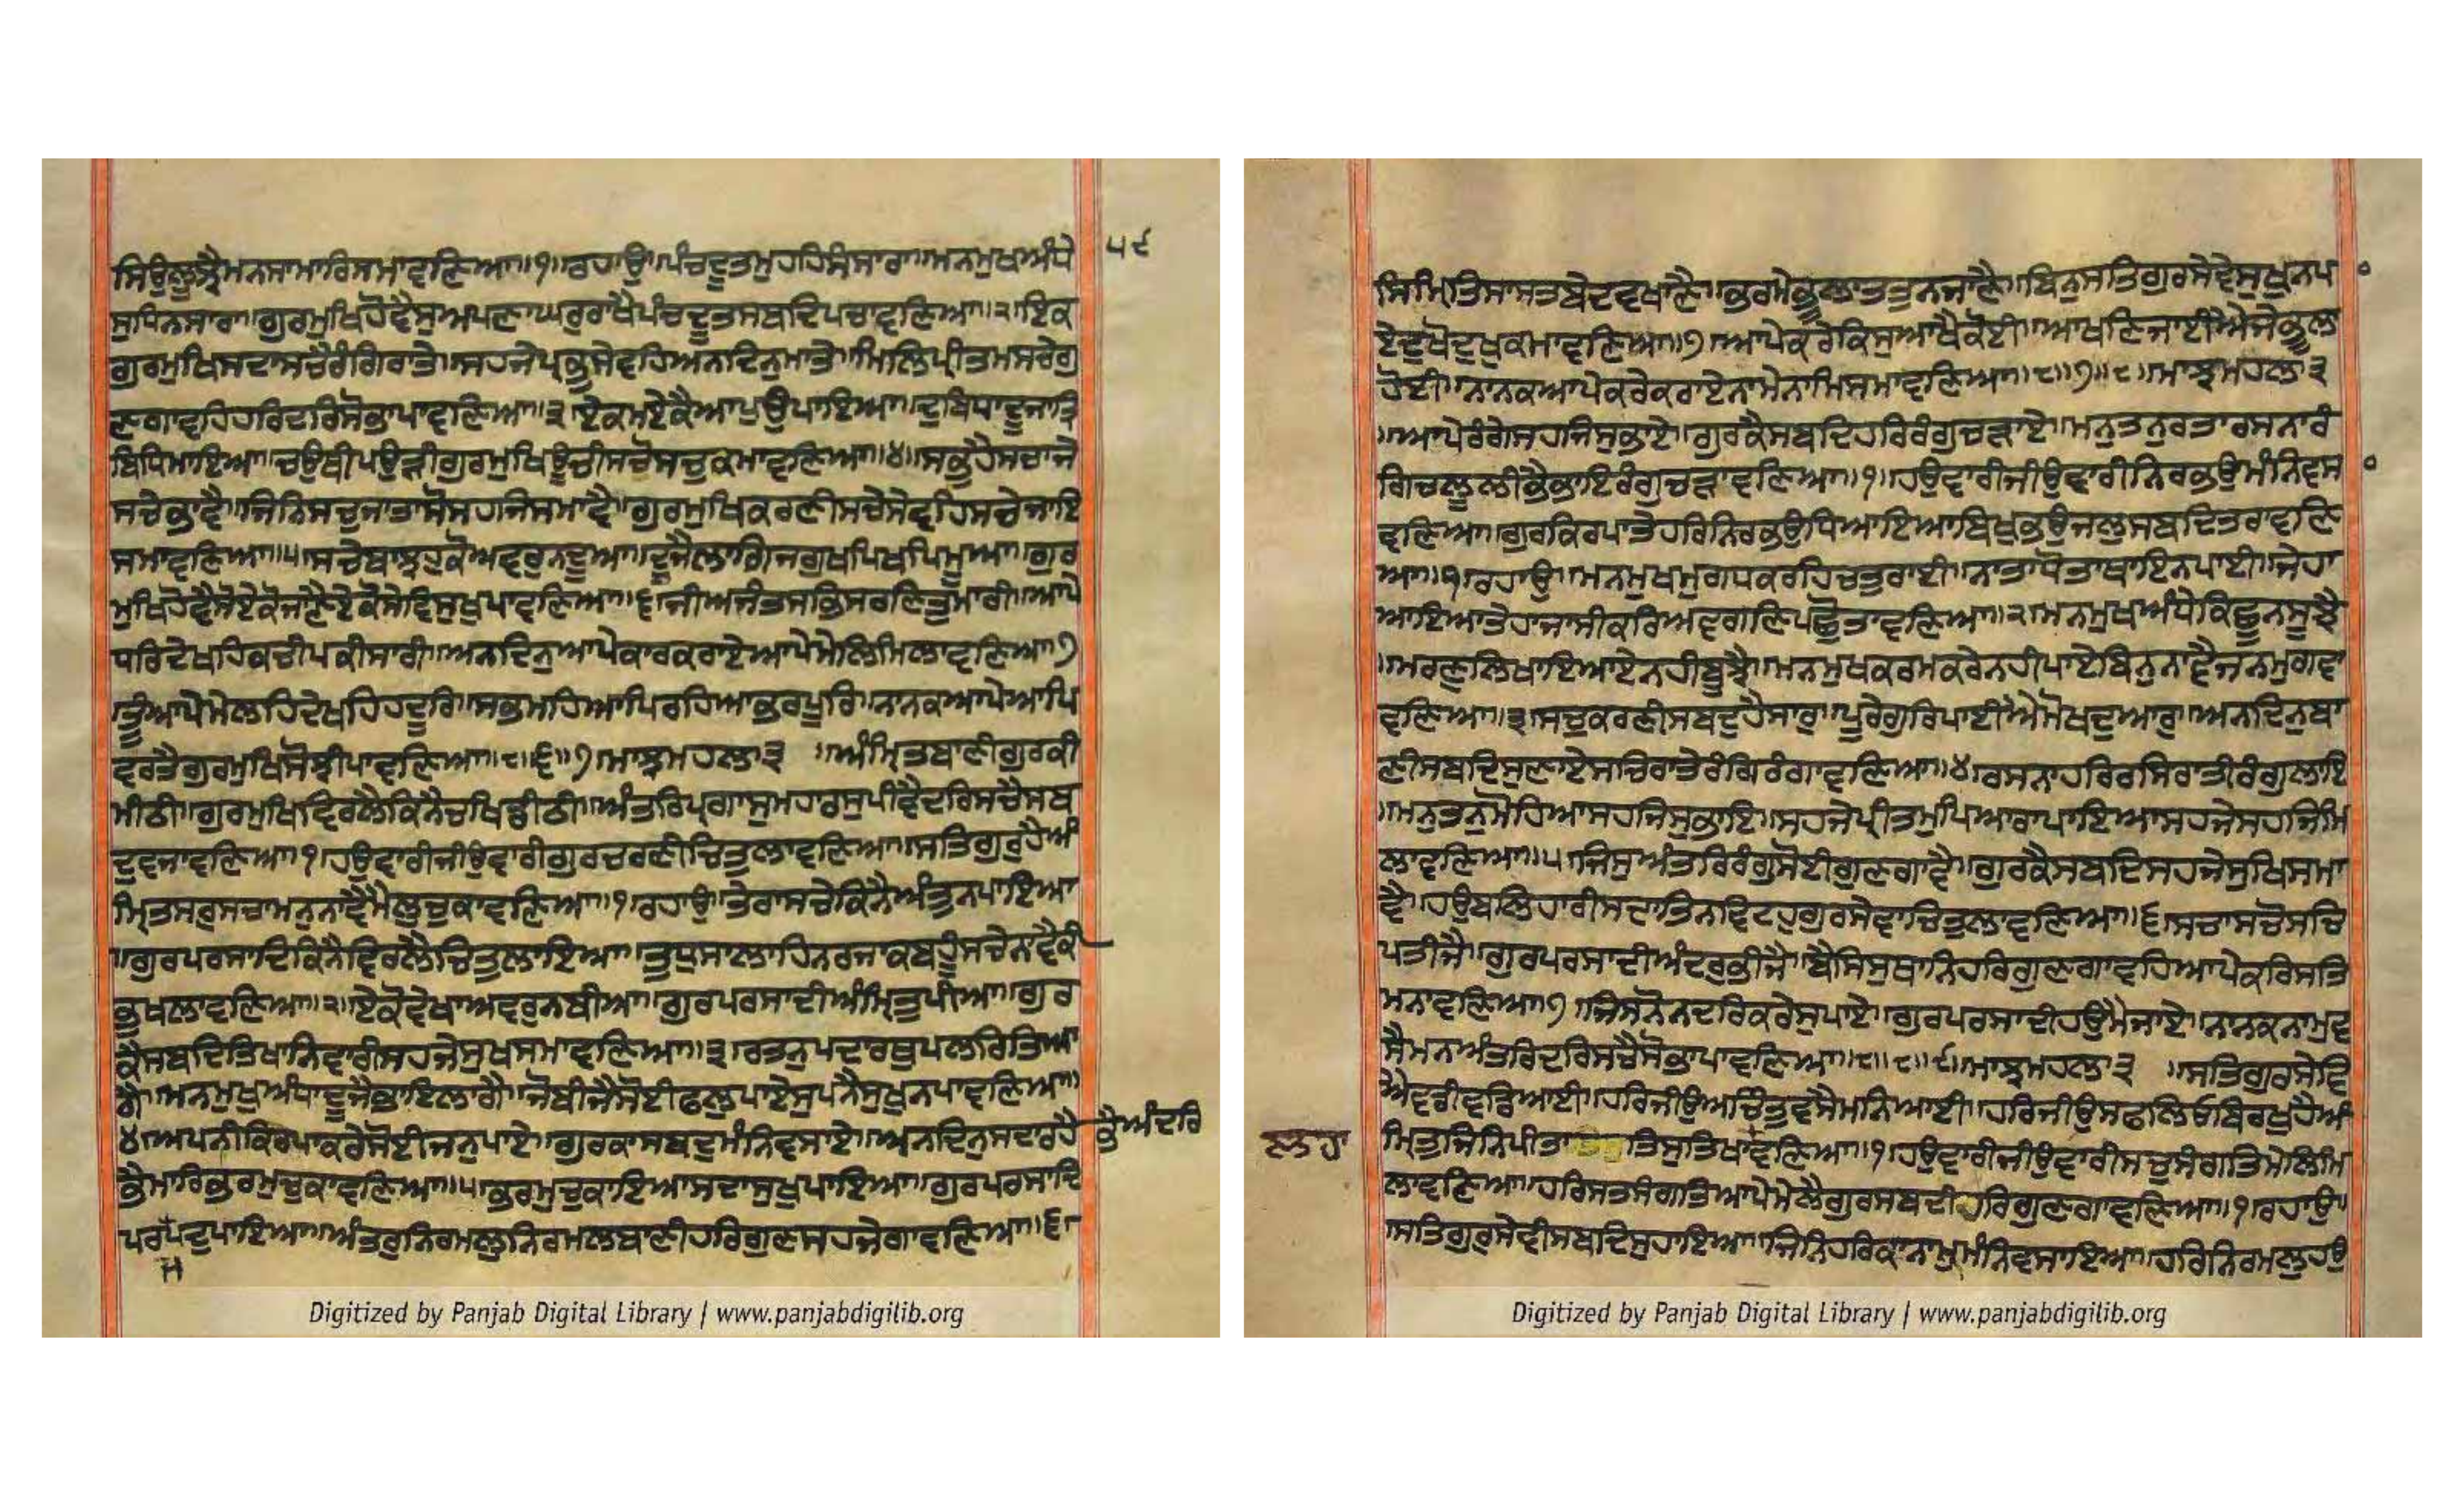 ਸਿਉਲੂਝੈਮਨਸਾਮਾਰਿਸਮਾਵਣਿਆ॥੧॥ਰਹਾਉ॥ਪੰਚਦੂਤਮੁਹਹਿਸੰਸਾਰਾ॥ਮਨਮੁਖਅੰਧੇ
੫੯
ਸੁਧਿਨਸਾਰਾ॥ਗੁਰਮੁਖਿਹੋਵੈਸੁਅਪਣਾਘਰੁਰਾਖੈਪੰਚਦੂਤਸਬਦਿਪਚਾਵਣਿਆ॥੨॥ਇਕ
ਗੁਰਮੁਖਿਸਦਾਸਚੈਰੰਗਿਰਾਤੇ॥ਸਹਜੇਪ੍ਰਭੁਸੇਵਹਿਅਨਦਿਨੁਮਾਤੇ॥ਮਿਲਿਪ੍ਰੀਤਮਸਚੇਗੁ
ਣਗਾਵਹਿਹਰਿਦਰਿਸੋਭਾਪਾਵਣਿਆ॥੩॥ਏਕਮਏਕੈਆਪੁਉਪਾਇਆ॥ਦੁਬਿਧਾਦੂਜਾਤ੍ਰਿ
ਬਿਧਿਮਾਇਆ॥ਚਉਥੀਪਉੜੀਗੁਰਮੁਖਿਊਚੀਸਚੋਸਚੁਕਮਾਵਣਿਆ॥੪॥ਸਭੁਹੈਸਚਾਜੇ
ਸਚੇਭਾਵੈ॥ਜਿਨਿਸਚੁਜਾਤਾਸੋਸਹਜਿਸਮਾਵੈ॥ਗੁਰਮੁਖਿਕਰਣੀਸਚੇਸੇਵਹਿਸਾਚੇਜਾਇ
ਸਮਾਵਣਿਆ॥੫॥ਸਚੇਬਾਝਹੁਕੋਅਵਰੁਨਦੂਆ॥ਦੂਜੈਲਾਗਿਜਗੁਖਪਿਖਪਿਮੂਆ॥ਗੁਰ
ਮੁਖਿਹੋਵੈਸੋਏਕੋਜਾਣੈਏਕੋਸੇਵਿਸੁਖੁਪਾਵਣਿਆ॥੬॥ਜੀਅਜੰਤਸਭਿਸਰਣਿਤੁਮਾਰੀ॥ਆਪੇ
ਧਰਿਦੇਖਹਿਕਚੀਪਕੀਸਾਰੀ॥ਅਨਦਿਨੁਆਪੇਕਾਰਕਰਾਏਆਪੇਮੇਲਿਮਿਲਾਵਣਿਆ॥੭
॥ਤੂੰਆਪੇਮੇਲਹਿਦੇਖਹਿਹਦੂਰਿ॥ਸਭਮਹਿਆਪਿਰਹਿਆਭਰਪੂਰਿ॥ਨਾਨਕਆਪੇਆਪਿ
ਵਰਤੈਗੁਰਮੁਖਿਸੋਝੀਪਾਵਣਿਆ॥੮॥੬॥੭॥ਮਾਝਮਹਲਾ੩ ॥ਅੰਮ੍ਰਿਤਬਾਣੀਗੁਰਕੀ
ਮੀਠੀ॥ਗੁਰਮੁਖਿਵਿਰਲੈਕਿਨੈਚਖਿਡੀਠੀ॥ਅੰਤਰਿਪਰਗਾਸੁਮਹਾਰਸੁਪੀਵੈਦਰਿਸਚੈਸਬ
ਦੁਵਜਾਵਣਿਆ॥੧॥ਹਉਵਾਰੀਜੀਉਵਾਰੀਗੁਰਚਰਣੀਚਿਤੁਲਾਵਣਿਆ॥ਸਤਿਗੁਰੁਹੈਅੰ
ਮ੍ਰਿਤਸਰੁਸਚਾਮਨੁਨਾਵੈਮੈਲੁਚੁਕਾਵਣਿਆ॥੧॥ਰਹਾਉ॥ਤੇਰਾਸਚੇਕਿਨੈਅੰਤੁਨਪਾਇਆ
॥ਗੁਰਪਰਸਾਦਿਕਿਨੈਵਿਰਲੈਚਿਤੁਲਾਇਆ॥ਤੁਧੁਸਾਲਾਹਿਨਰਜਾਕਬਹੂੰਸਚੇਨਾਵੈਕੀ
ਭੁਖਲਾਵਣਿਆ॥੨॥ਏਕੋਵੇਖਾਅਵਰੁਨਬੀਆ॥ਗੁਰਪਰਸਾਦੀਅੰਮ੍ਰਿਤੁਪੀਆ॥ਗੁਰ
ਕੈਸਬਦਿਤਿਖਾਨਿਵਾਰੀਸਹਜੇਸੁਖਸਮਾਵਣਿਆ॥੩॥ਰਤਨੁਪਦਾਰਥੁਪਲਰਿਤਿਆ
ਗੈ॥ਮਨਮੁਖੁਅੰਧਾਦੂਜੈਭਾਇਲਾਗੈ॥ਜੋਬੀਜੈਸੋਈਫਲੁਪਾਏਸੁਪਨੈਸੁਖੁਨਪਾਵਣਿਆ॥
੪॥ਅਪਨੀਕਿਰਪਾਕਰੇਸੋਈਜਨੁਪਾਏ॥ਗੁਰਕਾਸਬਦੁਮੰਨਿਵਸਾਏ॥ਅਨਦਿਨੁਸਦਾਰਹੈ ਭੈਅੰਦਰਿ
ਭੈਮਾਰਿਭਰਮੁਚੁਕਾਵਣਿਆ॥੫॥ਭਰਮੁਚੁਕਾਇਆਸਦਾਸੁਖੁਪਾਇਆ॥ਗੁਰਪਰਸਾਦਿ
ਪਰਪਦੁਪਾਇਆ॥ਅੰਤਰੁਨਿਰਮਲੁਨਿਰਮਲਬਾਣੀਹਰਿਗੁਣਸਹਜੇਗਾਵਣਿਆ॥੬॥
ਮ
Digitized by Panjab Digital Library | www.panjabdigilib.org
ਸਿੰਮ੍ਰਿਤਿਸਾਸਤਬੇਦਵਖਾਣੈ॥ਭਰਮੇਭੂਲਾਤਤੁਨਜਾਣੈ॥ਬਿਨੁਸਤਿਗੁਰਸੇਵੇਸੁਖੁਨਪਾ
ਏਦੁਖੋਦੁਖੁਕਮਾਵਣਿਆ॥੭॥ਆਪੇਕਰੇਕਿਸੁਆਖੈਕੋਈ॥ਆਖਣਿਜਾਈਐਜੇਭੂਲਾ
ਹੋਈ॥ਨਾਨਕਆਪੇਕਰੇਕਰਾਏਨਾਮੇਨਾਮਿਸਮਾਵਣਿਆ॥੮॥੭॥੮॥ਮਾਝਮਹਲਾ੩
॥ਆਪੇਰੰਗੇਸਹਜਿਸੁਭਾਏ॥ਗੁਰਕੈਸਬਦਿਹਰਿਰੰਗੁਚੜਾਏ॥ਮਨੁਤਨੁਰਤਾਰਸਨਾਰੰ
ਗਿਚਲੂਲੀਭੈਭਾਇਰੰਗੁਚੜਾਵਣਿਆ॥੧॥ਹਉਵਾਰੀਜੀਉਵਾਰੀਨਿਰਭਉਮੰਨਿਵਸਾ
ਵਣਿਆ॥ਗੁਰਕਿਰਪਾਤੇਹਰਿਨਿਰਭਉਧਿਆਇਆਬਿਖੁਭਉਜਲੁਸਬਦਿਤਰਾਵਣਿ
ਆ॥੧॥ਰਹਾਉ॥ਮਨਮੁਖਮੁਗਧਕਰਹਿਚਤੁਰਾਈ॥ਨਾਤਾਧੋਤਾਥਾਇਨਪਾਈ॥ਜੇਹਾ
ਆਇਆਤੇਹਾਜਾਸੀਕਰਿਅਵਗਣਿਪਛੋਤਾਵਣਿਆ॥੨॥ਮਨਮੁਖਅੰਧੇਕਿਛੂਨਸੂਝੈ
॥ਮਰਣੁਲਿਖਾਇਆਏਨਹੀਬੂਝੈ॥ਮਨਮੁਖਕਰਮਕਰੇਨਹੀਪਾਏਬਿਨੁਨਾਵੈਜਨਮੁਗਵਾ
ਵਣਿਆ॥੩॥ਸਚੁਕਰਣੀਸਬਦੁਹੈਸਾਰੁ॥ਪੂਰੈਗੁਰਿਪਾਈਐਮੋਖਦੁਆਰੁ॥ਅਨਦਿਨੁਬਾ
ਣੀਸਬਦਿਸੁਣਾਏਸਚਿਰਾਤੇਰੰਗਿਰੰਗਾਵਣਿਆ॥੪॥ਰਸਨਾਹਰਿਰਸਿਰਾਤੀਰੰਗੁਲਾਇ
॥ਮਨੁਤਨੁਮੋਹਿਆਸਹਜਿਸੁਭਾਇ॥ਸਹਜੇਪ੍ਰੀਤਮੁਪਿਆਰਾਪਾਇਆਸਹਜੇਸਹਜਿਮਿ
ਲਾਵਣਿਆ॥੫॥ਜਿਸੁਅੰਤਰਿਰੰਗੁਸੋਈਗੁਣਗਾਵੈ॥ਗੁਰਕੈਸਬਦਿਸਹਜੇਸੁਖਿਸਮਾ
ਵੈ॥ਹਉਬਲਿਹਾਰੀਸਦਾਤਿਨਵਿਟਹੁਗੁਰਸੇਵਾਚਿਤੁਲਾਵਣਿਆ॥੬॥ਸਚਾਸਚੋਸਚਿ
ਪਤੀਜੈ॥ਗੁਰਪਰਸਾਦੀਅੰਦਰੁਭੀਜੈ॥ਬੈਸਿਸੁਥਾਨਿਹਰਿਗੁਣਗਾਵਹਿਆਪੇਕਰਿਸਤਿ
ਮਨਾਵਣਿਆ॥੭॥ਜਿਸਨੋਨਦਰਿਕਰੇਸੁਪਾਏ॥ਗੁਰਪਰਸਾਦੀਹਉਮੈਜਾਏ॥ਨਾਨਕਨਾਮੁਵ
ਸੈਮਨਅੰਤਰਿਦਰਿਸਚੈਸੋਭਾਪਾਵਣਿਆ॥੮॥੮॥੯॥ਮਾਝਮਹਲਾ੩ ॥ਸਤਿਗੁਰਸੇਵਿ
ਐਵਡੀਵਡਿਆਈ॥ਹਰਿਜੀਉਅਚਿੰਤੁਵਸੈਮਨਿਆਈ॥ਹਰਿਜੀਉਸਫਲਿਓਬਿਰਖੁਹੈਅੰ
ਲਾਹਾ ਮ੍ਰਿਤੁਜਿਨਿਪੀਤਾਤਿਸੁਤਿਖਾਵਣਿਆ॥੧॥ਹਉਵਾਰੀਜੀਉਵਾਰੀਸਚੁਸੰਗਤਿਮੇਲਿਮਿ
ਲਾਵਣਿਆ॥ਹਰਿਸਤਸੰਗਤਿਆਪੇਮੇਲੈਗੁਰਸਬਦੀਹਰਿਗੁਣਗਾਵਣਿਆ॥੧॥ਰਹਾਉ॥
॥ਸਤਿਗੁਰੁਸੇਵੀਸਬਦਿਸੁਹਾਇਆ॥ਜਿਨਿਹਰਿਕਾਨਾਮੁਮੰਨਿਵਸਾਇਆ॥ਹਰਿਨਿਰਮਲੁਹਉ
Digitized by Panjab Digital Library | www.panjabdigilib.org